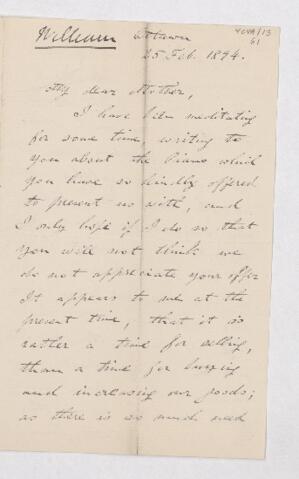 William
Ottawa
25 Feb. 1894.
My dear Mother,
I have been meditating
for some time, writing to
you about the piano which
you have so kindly offered
to present us with, and
I only hope if I do so that
you will not think we
do not appreciate your offer
It appears to me at the
present time, that it is
rather a time for selling,
than a time for buying
and increasing our goods;
as there is so much need